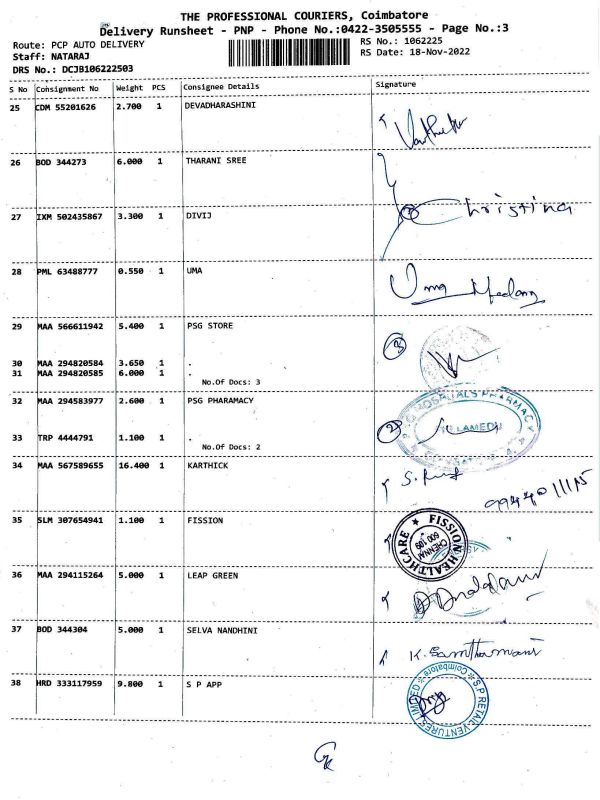 THE PROFESSIONAL COURIERS, Coimbatore
Delivery Runsheet - PNP - Phone No.:0422-3505555 - Page No.:3
Route: PCP AUTO DELIVERY
RS No.: 1062225
Staff: NATARAJ
RS Date: 18-Nov-2022
DRS No.: DCJB106222503
S No Consignment No Weight PCS Consignee Details Signature
25 CDM 55201626 2.700 1 DEVADHARASHINI
26 BOD 344273 6.000 1 THARANI SREE
Christina
27 IXM 502435867 3.300 1 DIVIJ
28 PML 63488777 0.550 1 UMA
Uma
29 MAA 566611942 5.400 1 PSG STORE
3
30 MAA 294820584 3.650 1 .
31 MAA 294820585 6.000 1 .
No.Of Docs: 3
32 MAA 294583977 2.600 1 PSG PHARAMACY
2
33 TRP 4444791 1.100 1 .
No.Of Docs: 2
34 MAA 567589655 16.400 1 KARTHICK
35 SLM 307654941 1.100 1 FISSION
FISSION HEALTHCARE
CHENNAI
600 109
36 MAA 294115264 5.000 1 LEAP GREEN
37 BOD 344304 5.000 1 SELVA NANDHINI
38 HRD 333117959 9.800 1 S P APP
S.P RETAIL VENTURES LIMITED
Coimbatore